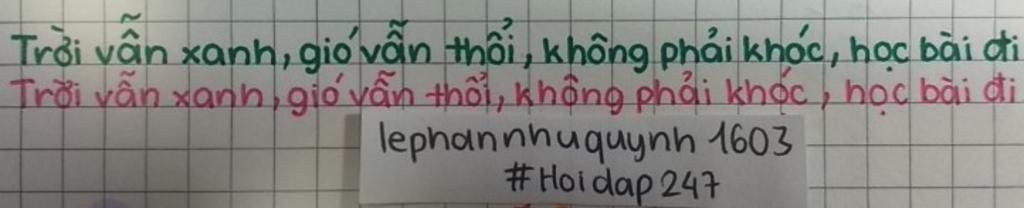 Trời vẫn xanh, gió vẫn thổi, không phải khóc, học bài đi
Trời vẫn xanh, gió vẫn thổi, không phải khóc, học bài đi
lephannhuquynh 1603
#Hoidap247